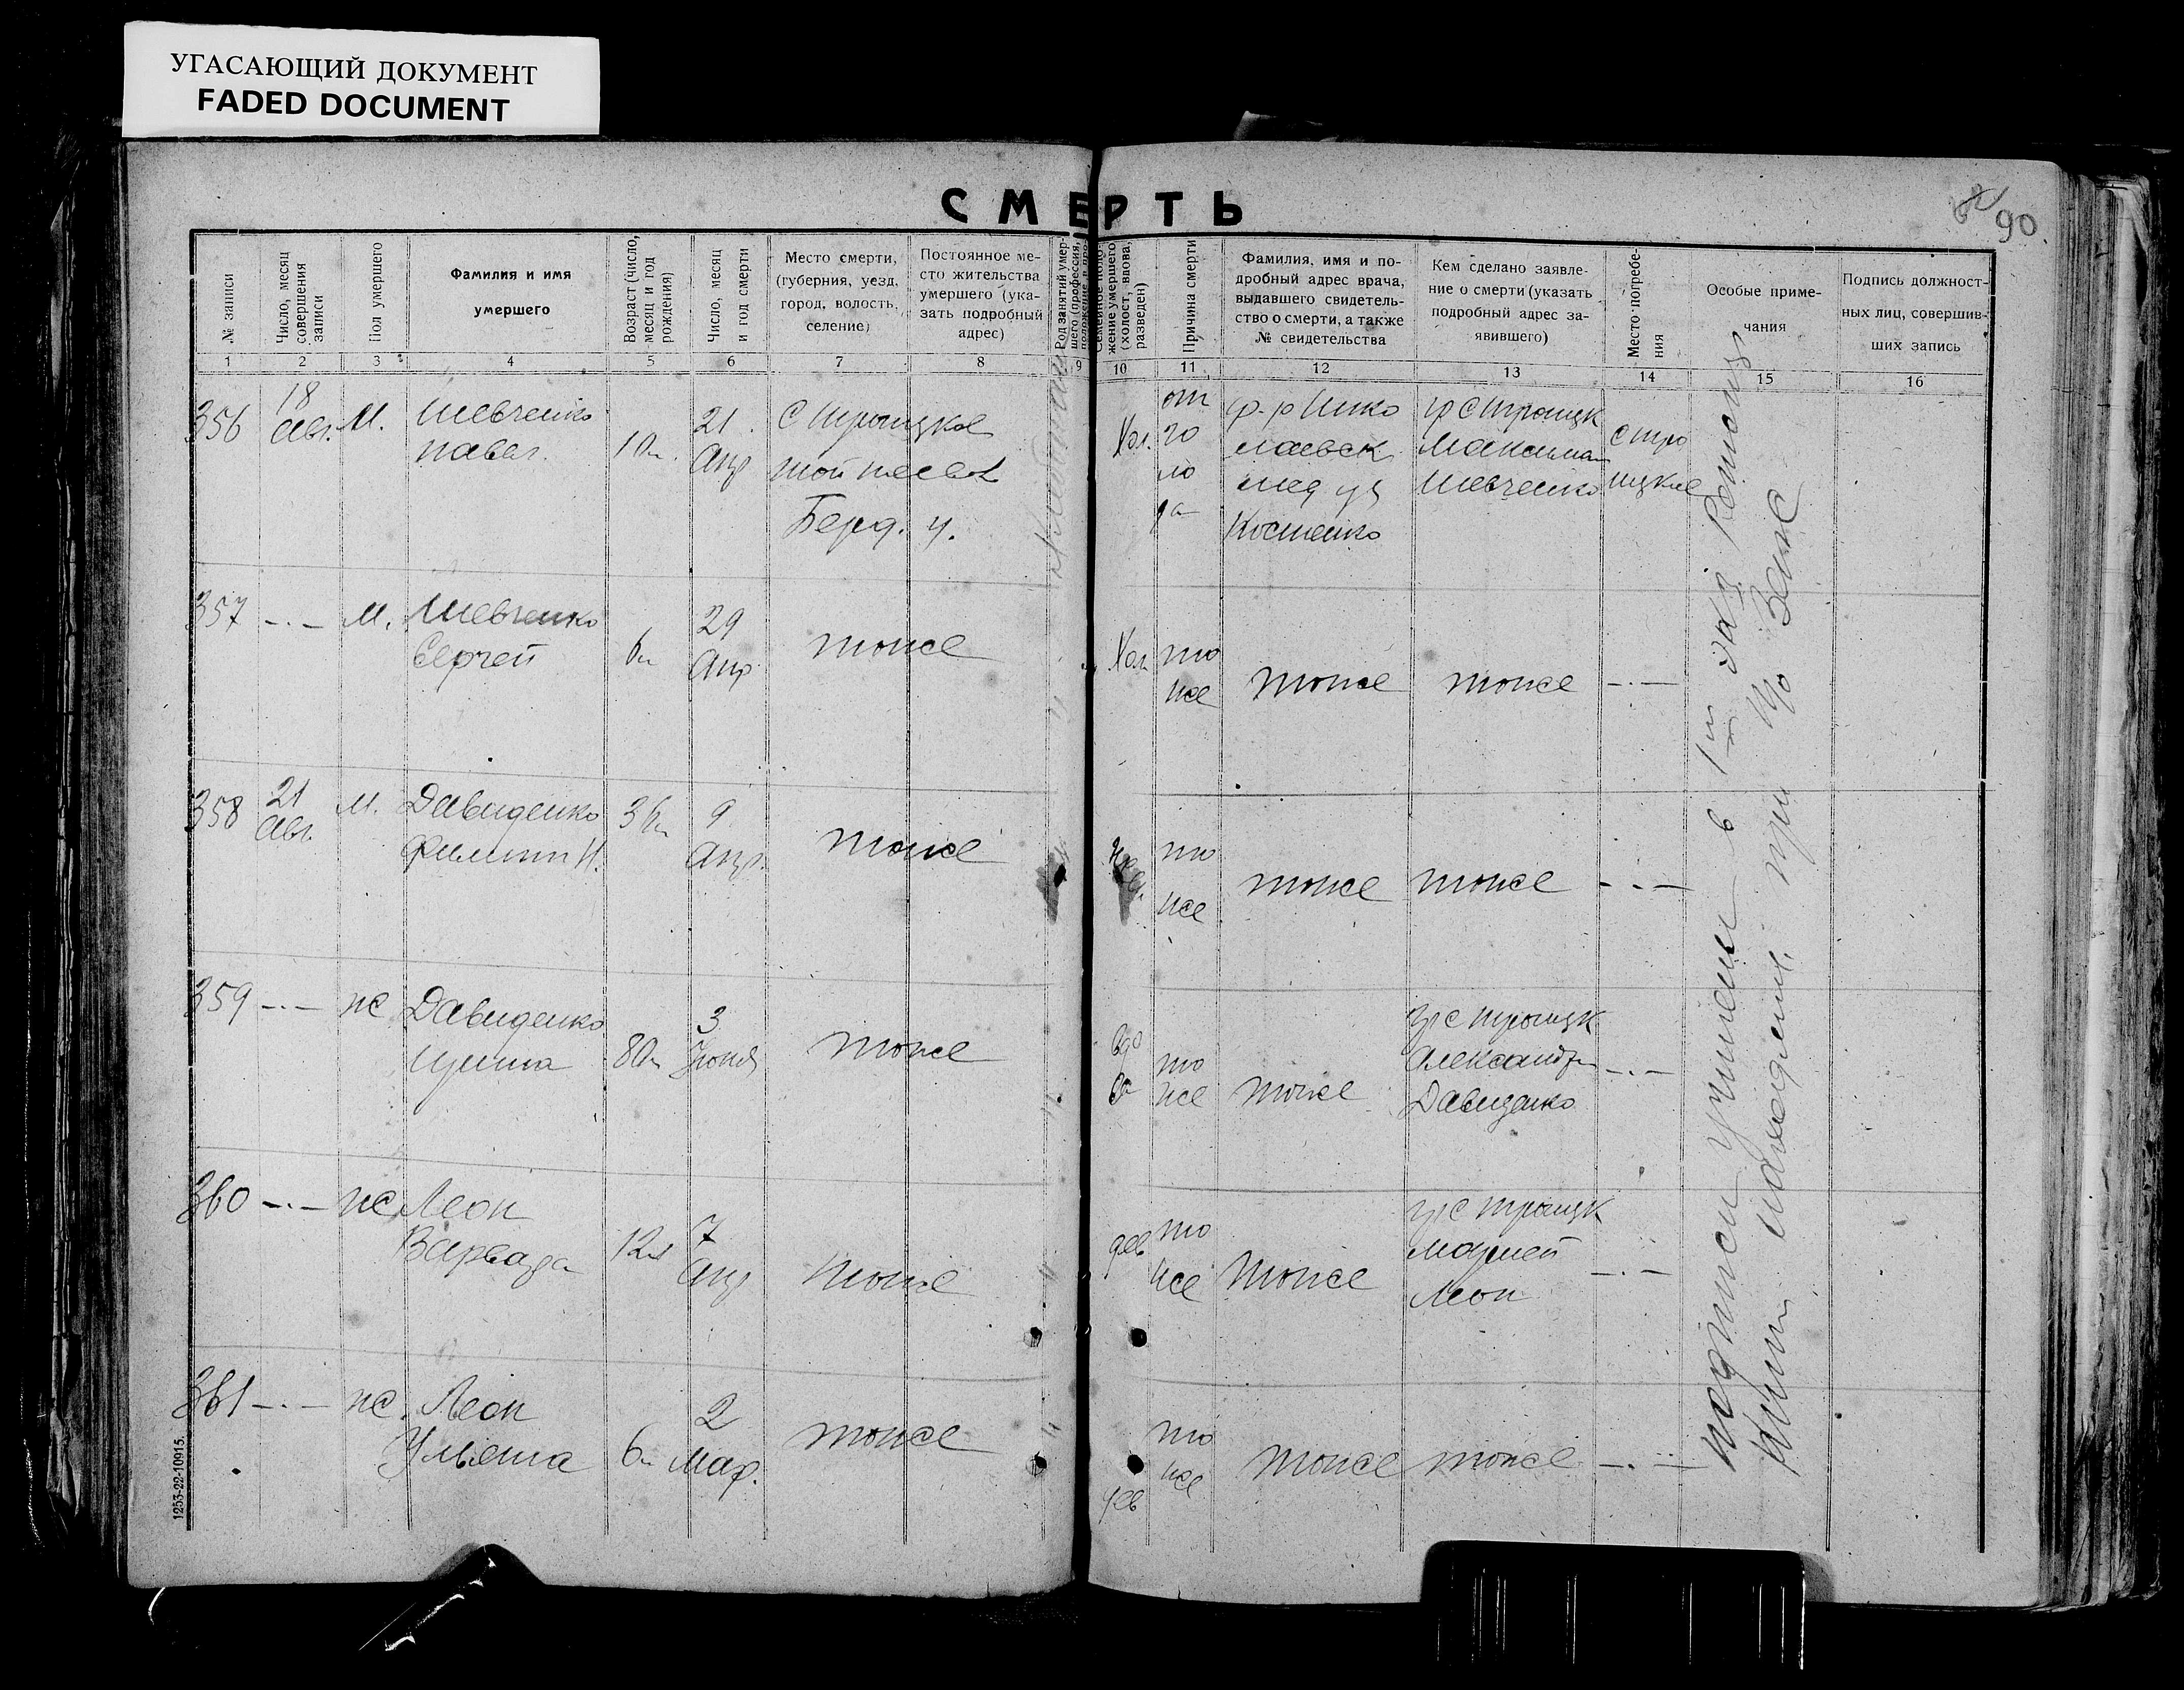 УГАСАЮЩИЙ ДОКУМЕНТ
FADED DOCUMENT
СМЕРТЬ
90.
№ записи
Число, месяц совершения записи
Пол умершего
Фамилия и имя умершего
Возраст (число, месяц и год рождения)
Число, месяц и год смерти
Место смерти, (губерния, уезд, город, волость, селение)
Постоянное место жительства умершего (указать подробный адрес)
Род занятий умершего (профессия,
жение умершего (холост, вдова, разведен)
Причина смерти
Фамилия, имя и подробный адрес врача, выдавшего свидетельство о смерти, а также № свидетельства
Кем сделано заявление о смерти (указать подробный адрес заявившего)
Место погребения
Особые примечания
Подпись должностных лиц, совершивших запись
1 2 3 4 5 6 7 8 9 10 11 12 13 14 15 16
356 18 Авг. М. Шевченко Павел. 10л. 21 Апр С Троицкое той Берд. у. Хол. от голода Костенко гр С Троицк Максима Шевченко С Троицкое
357 -.- М. Шевченко Сергей 6л 29 Апр тоже Хол тоже тоже тоже -.-
358 21 Авг. М. Давиденко Филипп И. 36л 9 Апр. тоже тоже тоже тоже -.-
359 -.- ж Давиденко Ирина 80л 3 Июня тоже вдова тоже тоже гр С Троицк Александр Давиденко -.-
360 -.- ж Леон Варвара 12л 7 Апр тоже дев тоже тоже гр С Троицк Матвей Леон -.-
361 -.- ж. Леон Ульяна 6л 2 Мар. тоже дев тоже тоже тоже -.-
подписи учинены в 1м экз
книги находящейся при
1253-22-10915.